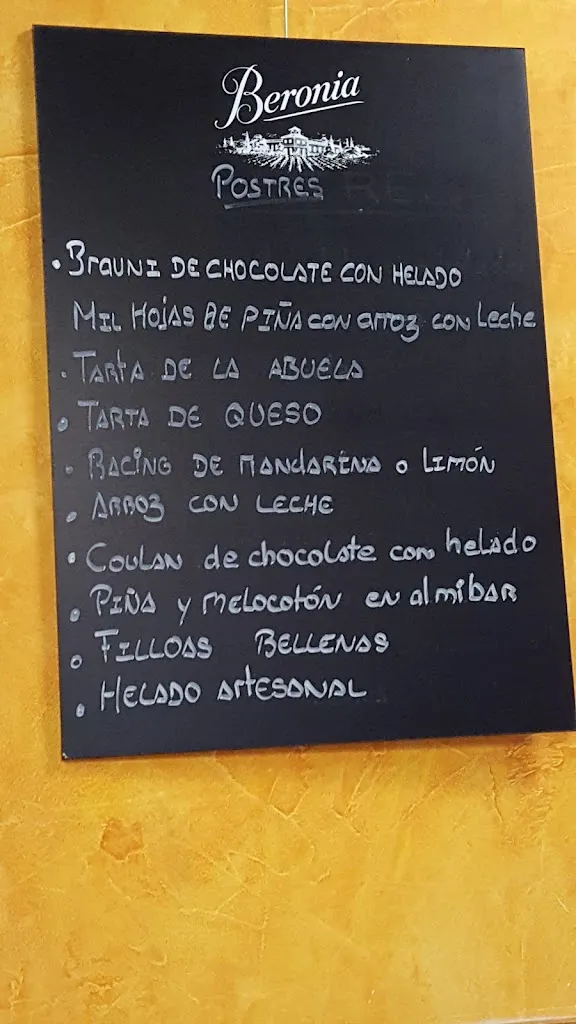 Beronia
POSTRES
• BrAUNI DE CHOCOLATE CON HELADO
MIL HOJAS DE PIÑA CON arroz CON Leche
• TARTA DE LA ABUELA
• TARTA DE QUESO
• RACING DE MANDARINA O LIMÓN
• ARROZ CON LECHE
• COULAN de chocolate con helado
• PIÑA y MELOCOTÓN en almIBAR
• FILLOAS RELLENAS
• HELADO ArTESANAL